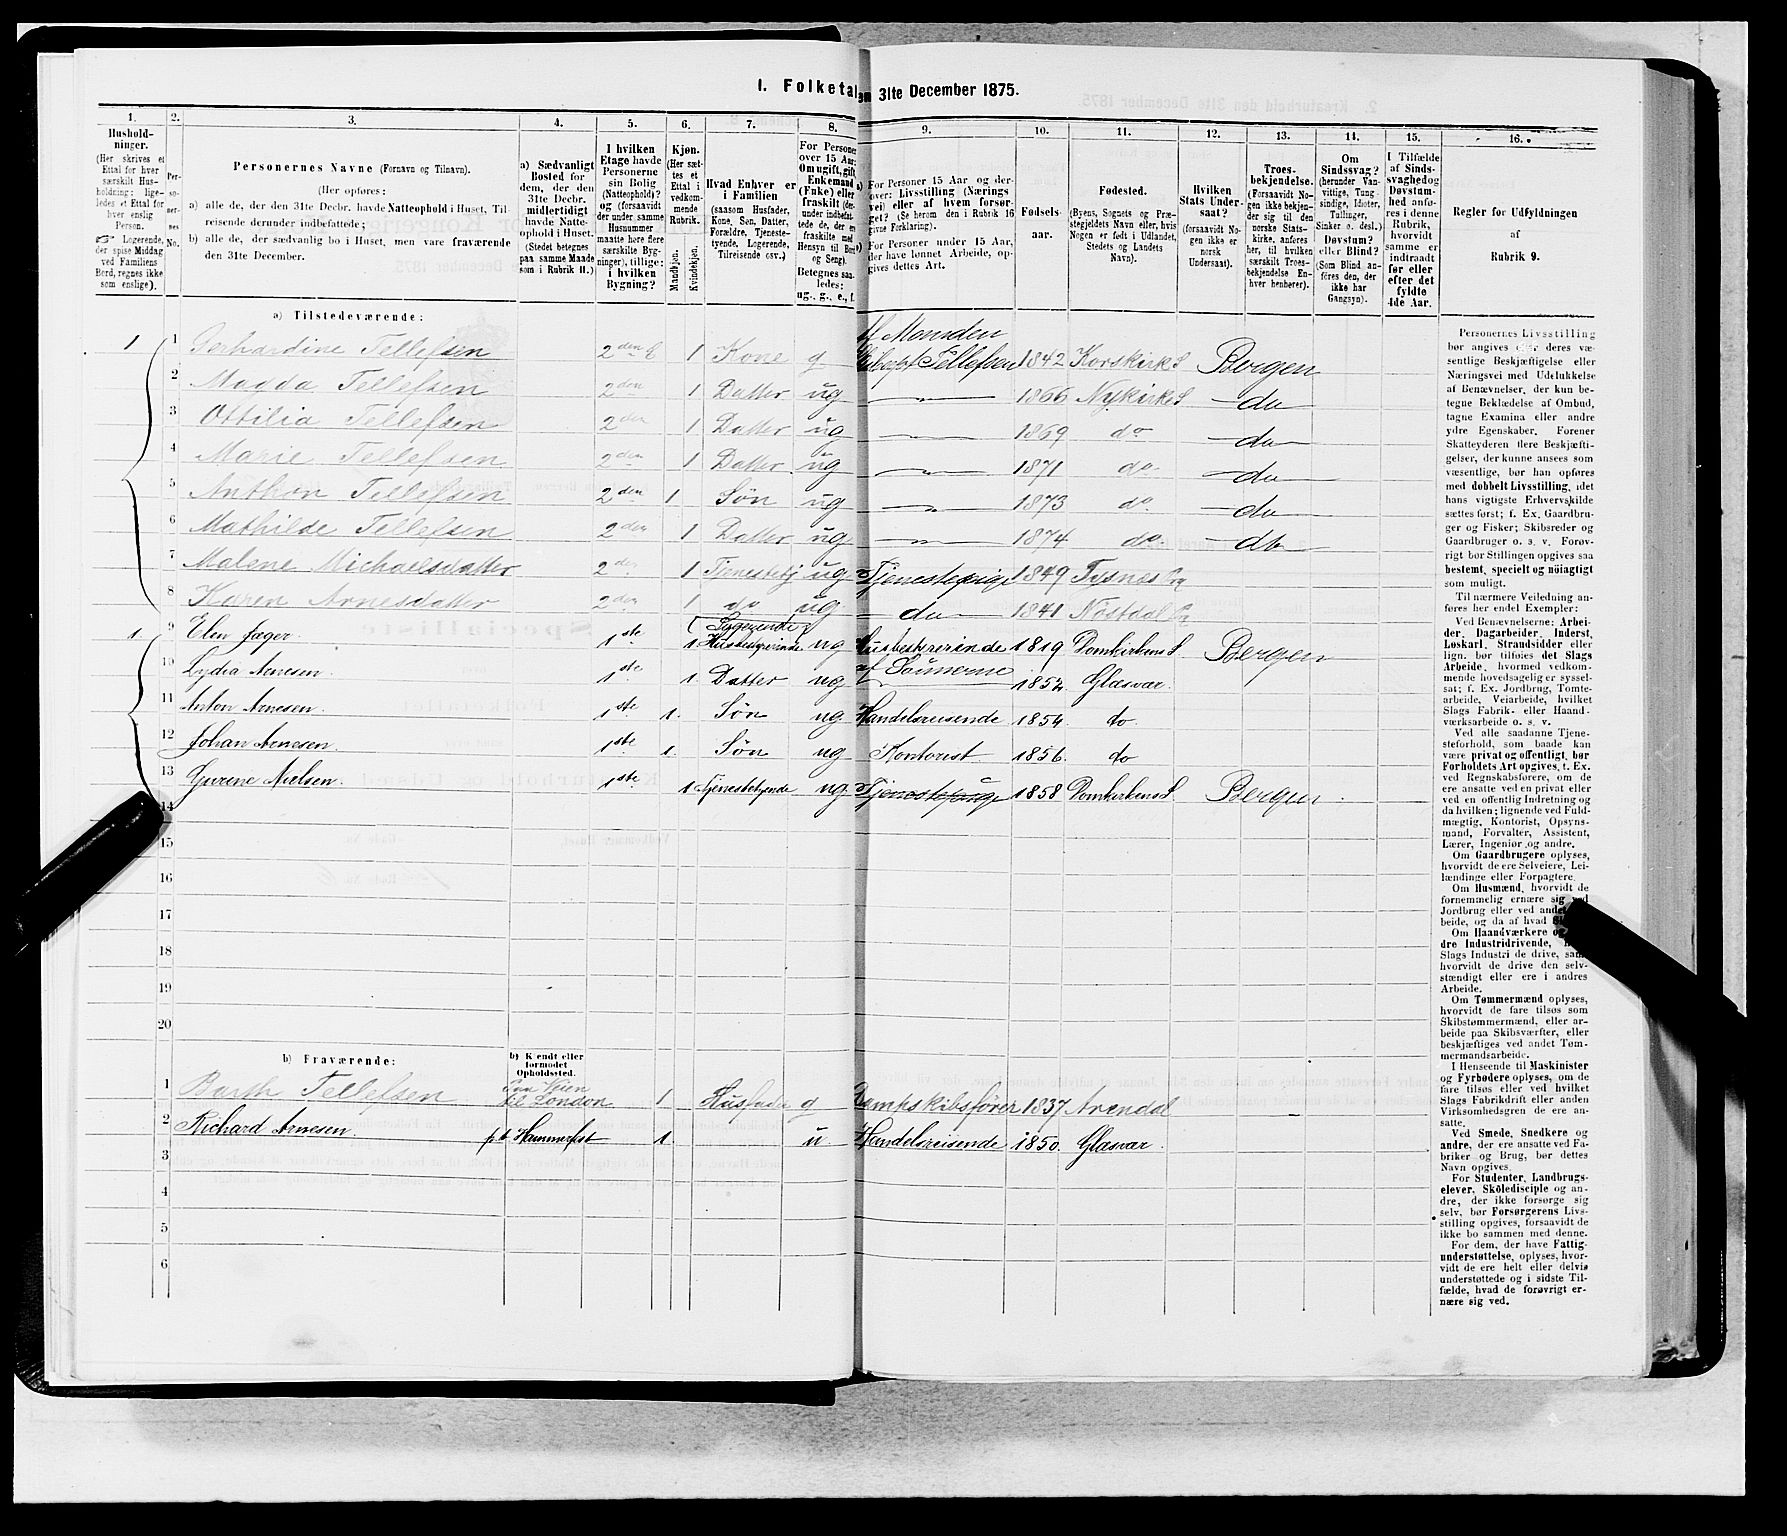 1. Folketal
am 31te December 1875.
1.
2.
3.
4.
5.
6.
7.
8.
9.
10.
11.
12.
13.
14.
15.
16.
Hushold-
ninger.
(Her skrives et
Ettal for hver
særskilt Hus-
holdning; lige-
ledes et Ettal for
hver enslig
Person.
Logerende,
der spise Middag
ved Familiens
Bord, regnes ikke
som enslige).
Per-
so-
ner-
nes
No.
Personernes Navne (Fornavn og Tilnavn).
(Her opføres:
a) alle de, der den 31te Decbr. havde Natteophold i Huset, Til-
reisende derunder indbefattede;
b) alle de, der sædvanlig bo i Huset, men vare fraværende
den 31te December.
a) Sædvanligt
Bosted for
dem, der den
31te Decbr.
midlertidigt
havde Natte-
ophold i Huset.
(Stedet betegnes
paa samme Maade
som i Rubrik 11.)
I hvilken
Etage havde
Personerne
sin Bolig
(Natteophold)?
og (forsaavidt
der under samme
Husnummer
maatte høre flere
særskilte Byg-
ninger), tillige:
i hvilken
Bygning?
Kjøn.
(Her sæt-
tes et
Ettal i
vedkom-
mende
Rubrik.
Mandkjøn.
Kvindekjøn.
Hvad Enhver er
i Familien
(saasom Husfader,
Kone, Søn, Datter,
Forældre, Tjeneste-
tyende, Logerende,
Tilreisende osv.)
For Personer
over 15 Aar:
Om ugift, gift,
Enkemand
(Enke) eller
fraskilt (der-
under indbefat-
tede de, der ere
fraskilte med
Hensyn til Bord
og Seng).
Betegnes saa-
ledes:
ug., g., e., f.
For Personer 15 Aar og der-
over: Livsstilling (Nærings
vei) eller af hvem forsør-
get? (Se herom den i Rubrik 16
givne Forklaring).
For Personer under 15 Aar,
der have lønnet Arbeide, op-
gives dettes Art.
Fødsels-
aar.
Fødested.
(Byens, Sognets og Præ-
stegjeldets Navn eller, hvis
Nogen er født i Udlandet,
Stedets og Landets
Navn).
Hvilken
Stats Under-
saat?
(forsaavidt No-
gen ikke er
norsk
Undersaat).
Troes-
bekjendelse.
(Forsaavidt No-
gen ikke bekjen-
der sig til den
norske Stats-
kirke, anføres
her, til hvilken
særskilt Troes-
bekjendelse En-
hver henhører).
Om
Sindssvag?
(herunder Van-
vittige, Tung-
sindige, Idioter,
Tullinger,
Sinker o. desl.)
Døvstum?
eller Blind?
(Som Blind an-
føres den, der
ikke har
Gangsyn).
I Tilfælde
af Sinds-
svaghed og
Døvstum-
hed anfø-
res i denne
Rubrik,
hvorvidt
samme er
indtraadt
før eller
efter det
fyldte
4de Aar.
Regler for Udfyldningen
af
Rubrik 9.
a) Tilstedeværende:
1 1 Gerhardine Tellefsen 2den E 1 Kone g Af Manden Tellefsen 1842 Korskirke S Bergen
2 Magda Tellefsen 2den 1 Datter ug 1866 Nykirke S do
3 Ottilia Tellefsen 2den 1 Datter ug 1869 do do
4 Marie Tellefsen 2den 1 Datter ug 1871 do do
5 Anthon Tellefsen 2den 1 Søn ug 1873 do do
6 Mathilde Tellefsen 2den 1 Datter ug 1874 do do
7 Malene Michaelsdatter 2den 1 Tjenestetj ug Tjenestepige 1849 Tysnes Pg
8 Karen Arnesdatter 2den 1 do ug do 1841
1. 9 Elen Jæger. 1ste 1 Husbestyrerinde ug Husbestyrerinde 1819 Domkirkens S Bergen
10 Lydia Arnesen. 1ste 1. Datter ug af Sønnerne 1852. Glæsvær.
11 Anton Arnesen. 1ste 1. Søn ug Handelsreisende 1854. do
12 Johan Arnesen. 1ste 1. Søn ug Kontorist 1856. do
13 Gurine Nielsen. 1ste 1 tjenestetyende ug Tjenestepige 1858 Domkirkens S. Bergen
14
15
16
17
18
19
20
b) Fraværende:
b) Kjendt eller
formodet
Opholdssted.
1 Barth Tellefsen Paa Veien til London 1 Husfader g Dampskibsfører 1837 Arendal
2 Richard Arnesen. pt Hammerfest 1. u. Handelsreisende 1850. Glæsvær.
3
4
5
6
Personernes Livsstilling
bør angives efter deres væ-
sentlige Beskjæftigelse eller
Næringsvei med Udelukkelse
af Benævnelser, der kun be-
tegne Beklædelse af Ombud,
tagne Examina eller andre
ydre Egenskaber. Forener
Skatteyderen flere Beskjæfti-
gelser, der kunne ansees som
væsentlige, bør han opføres
med dobbelt Livsstilling, idet
hans vigtigste Erhvervskilde
sættes først; f. Ex. Gaardbru-
ger og Fisker; Skibsreder og
Gaardbruger o. s. v. Forøv-
rigt bør Stillingen opgives saa
bestemt, specielt og nöiagtigt
som muligt.
Til nærmere Veiledning an-
føres her endel Exempler:
Ved Benævnelserne: Arbei-
der, Dagarbeider, Inderst,
Løskarl, Strandsidder eller
lign. bør tilføies det Slags
Arbeide, hvormed vedkom-
mende hovedsagelig er syssel-
sat; f. Ex. Jordbrug, Tomte-
arbeide, Veiarbeide, hvilket
Slags Fabrik- eller Haand-
værksarbeide o. s. v.
Ved alle saadanne Tjene-
steforhold, som baade kan
være privat og offentligt, bør
Forholdets Art opgives, f. Ex.
ved Regnskabsførere, om de
ere ansatte ved en privat eller
ved en offentlig Indretning og
da hvilken; lignende ved Fuld-
mægtig, Kontorist, Opsyns-
mand, Forvalter, Assistent,
Lærer, Ingeniør og andre.
Om Gaardbrugere oplyses,
hvorvidt de ere Selveiere, Lei-
lændinge eller Forpagtere.
Om Husmænd, hvorvidt de
fornemmelig ernære sig ved
Jordbrug eller ved andet
beide, og da af hvad
Om Haandværkere og
dre Industridrivende,
Slags Industri de drive, samt
hvorvidt de drive den selv-
stændigt eller ere i andres
Arbeide.
Om Tømmermænd oplyses,
hvorvidt de fare tilsøs som
Skibstømmermænd, eller ar-
beide paa Skibsværfter, eller
beskjæftiges ved andet Tøm-
mermandsarbeide.
I Henseende til Maskinister
og Fyrbødere oplyses, om de
fare tilsøs eller ved hvilket
Slags Fabrikdrift eller anden
Virksomhedsgren de ere an-
satte.
Ved Smede, Snedkere og
andre, der ere ansatte ved Fa-
briker og Brug, bør dettes
Navn opgives.
For Studenter, Landbrugs-
elever, Skoledisciple og an-
dre, der ikke forsørge sig
selv, bør Forsørgerens Livs-
stilling opgives, forsaavidt de
ikke bo sammen med denne.
For dem, der have Fattig-
understøttelse, oplyses, hvor-
vidt de ere helt eller delvis
understøttede og i sidste Til-
fælde, hvad de forøvrigt er-
nære sig ved.